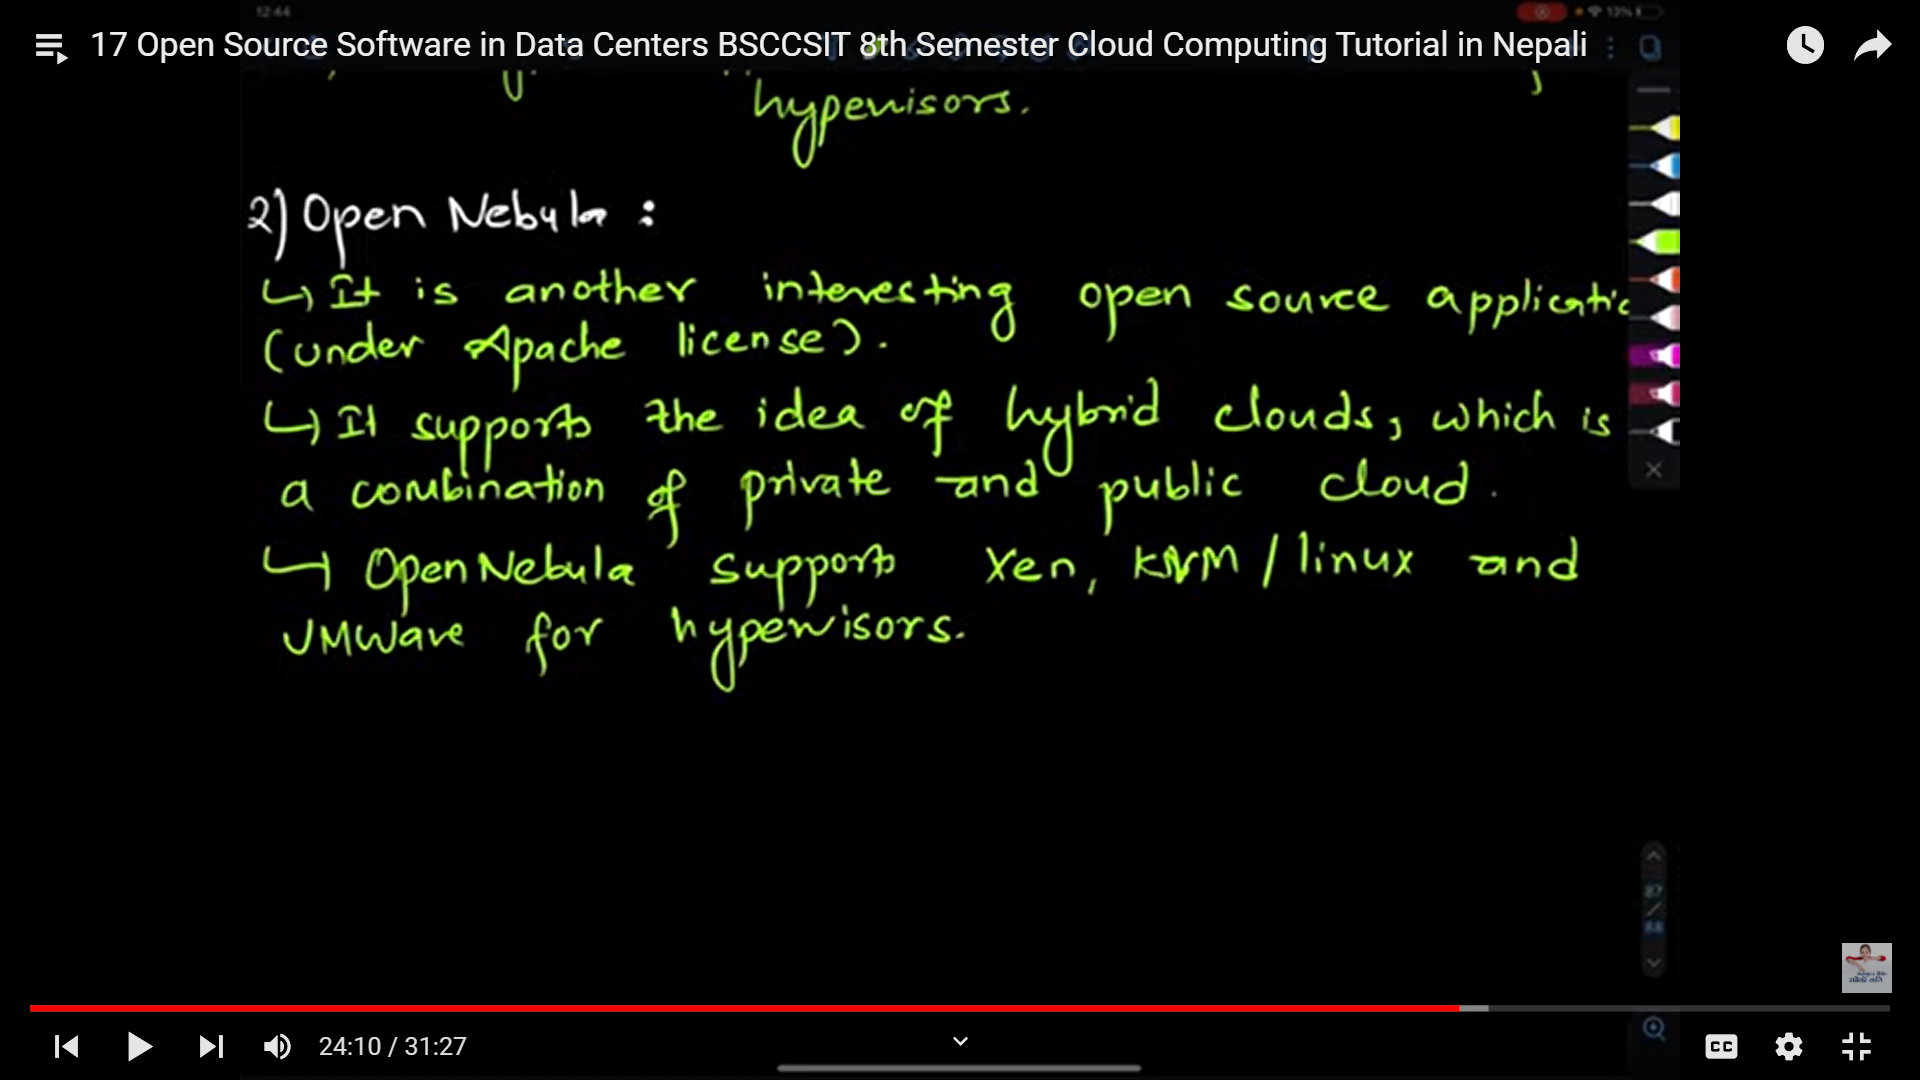 12:44
13%
17 Open Source Software in Data Centers BSCCSIT 8th Semester Cloud Computing Tutorial in Nepali
hypervisors.
2) Open Nebula :
↳ It is another interesting open source applicatio
(under Apache license).
↳ It supports the idea of hybrid clouds, which is
a combination of private and public cloud.
↳ OpenNebula supports Xen, KVM / linux and
VMWare for hypervisors.
87
/
88
24:10 / 31:27
CC